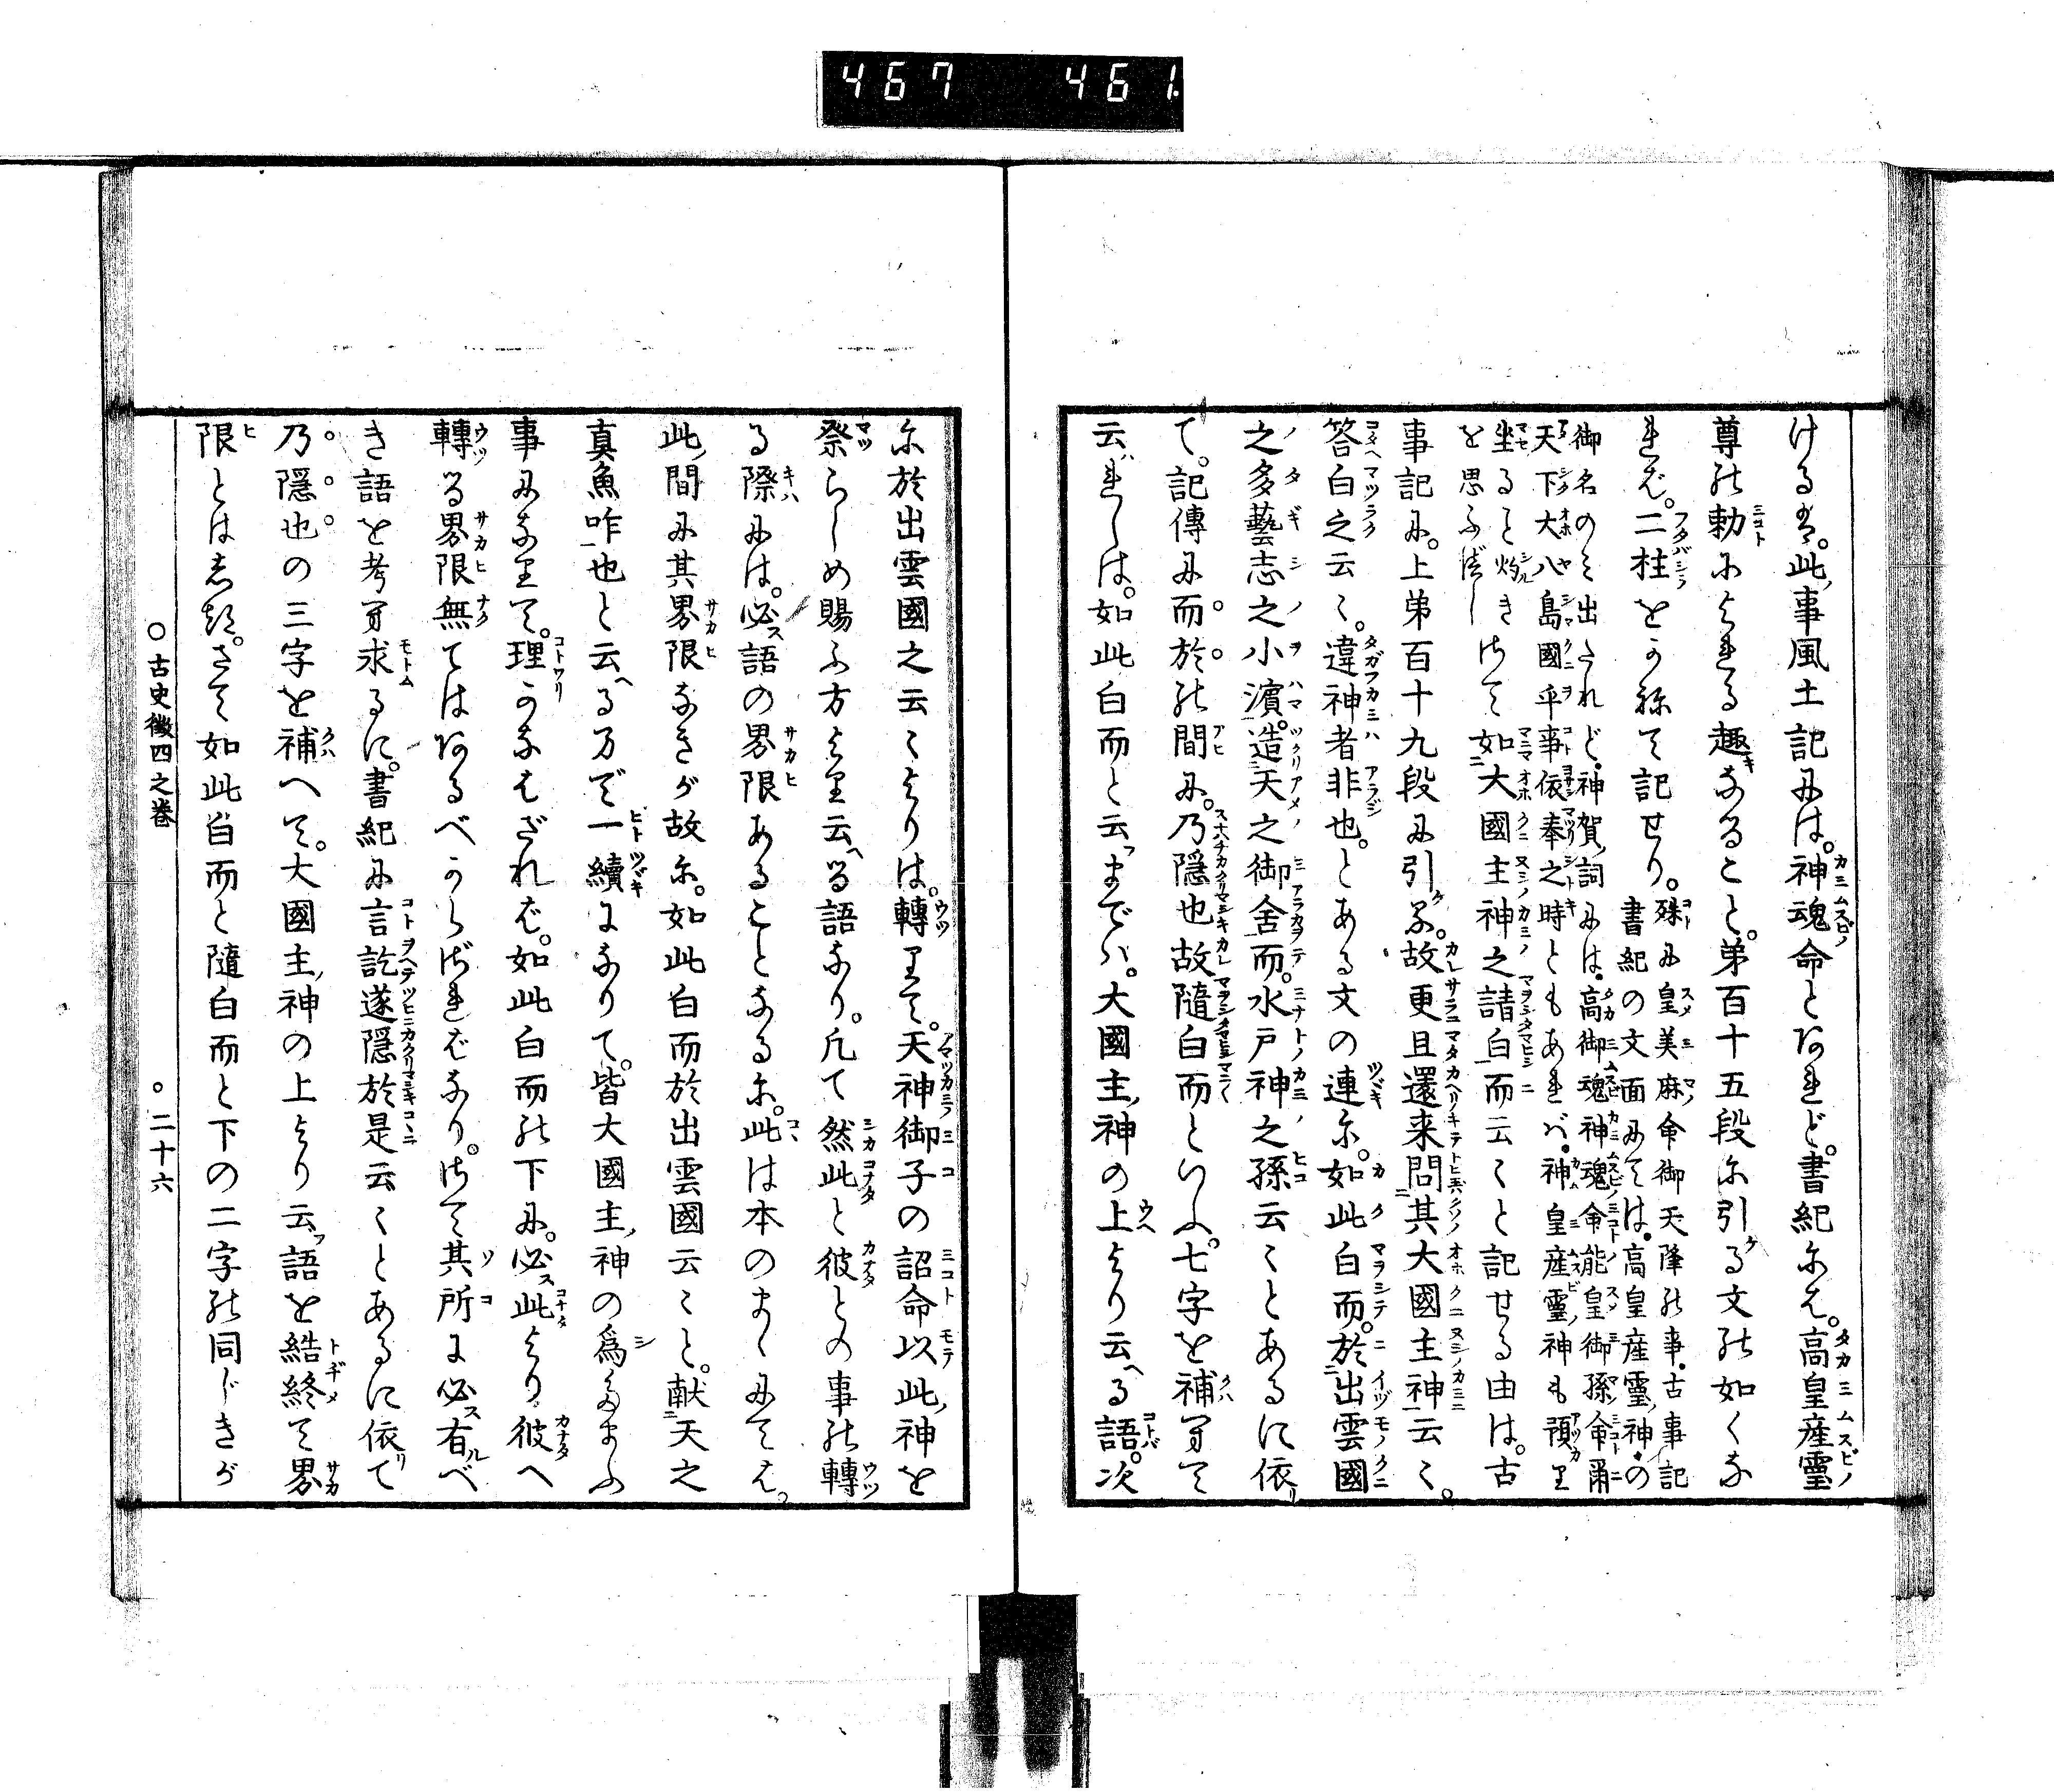 467 461
ける者。此事風土記には。神魂命とあれど。書紀には。高皇産靈
尊の勅によれる趣きなること。第百十五段に引ける文の如くな
れば。二柱をかねて記せり。殊に皇美麻命御天降の事。古事記
書紀の文面にては。高皇産靈神の
御名のみ出たれど。神賀詞には。高御魂神魂命能皇御孫命爾
天下大八島國乎事依奉之時ともあれバ。神皇産靈神も預り
坐ること灼きにて
を思ふべし 如大國主神之請白而云々と記せる由は。古
事記に。上第百十九段に引ク。故更且還来問其大國主神云々。
答白之云々。違神者非也。とある文の連に。如此白而。於出雲國
之多藝志之小濱。造天之御舎而。水戸神之孫云々とあるに依リ
て。記傳に而。於の間に。乃隠也故隨白而といふ。七字を補ひて
云ハれしは。如此白而と云フまでハ。大國主神の上より云ヘる語。次
に於出雲國之云々よりは。轉りて。天神御子の詔命以此神を
祭らしめ賜ふ方より云ヘる語なり。凡て然此と彼との事の轉
る際には。必ス語の界限あることなるに。此は本のまゝにては。
此ノ間に其界限なきが故に。如此白而於出雲國云々と。献天之
真魚咋也と云ヘる万で一續になりて。皆大國主神の為たまふ
事になりて。理かなはざれば。如此白而の下に。必ス此より彼へ
轉る界限無てはあるべからざればなり。さて其所に必ス有ルべ
き語を考ヘ求るに。書紀に言訖遂隠於是云々とあるに依リて
乃隠也の三字を補へて。大國主神の上より云フ語を結終て界
限とはしつ。さて如此白而と隨白而と下の二字の同じきが
○古史徴四之巻 ○二十六